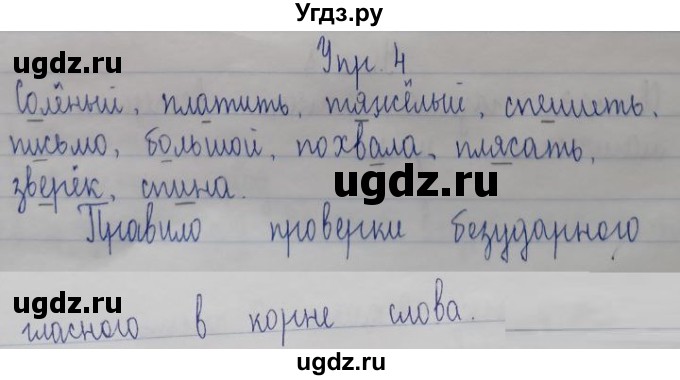 Угдз.ру
ugdz.ru
Упр. 4
Солёный, платить, тяжёлый, спешить,
письмо, большой, похвала, плясать,
зверёк, спина.
ugdz.ru
Правило проверки безударного
ugdz.ru
гласного в корне слова.
ugdz.ru